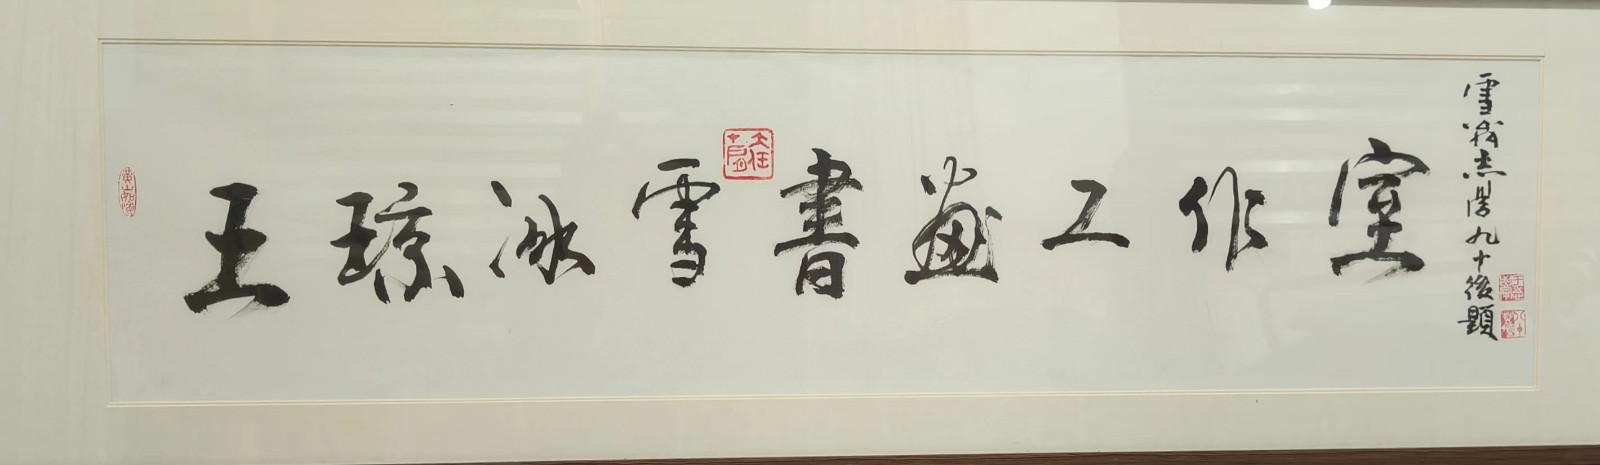 王琼冰雪書畫工作室
雪 志 九十後題